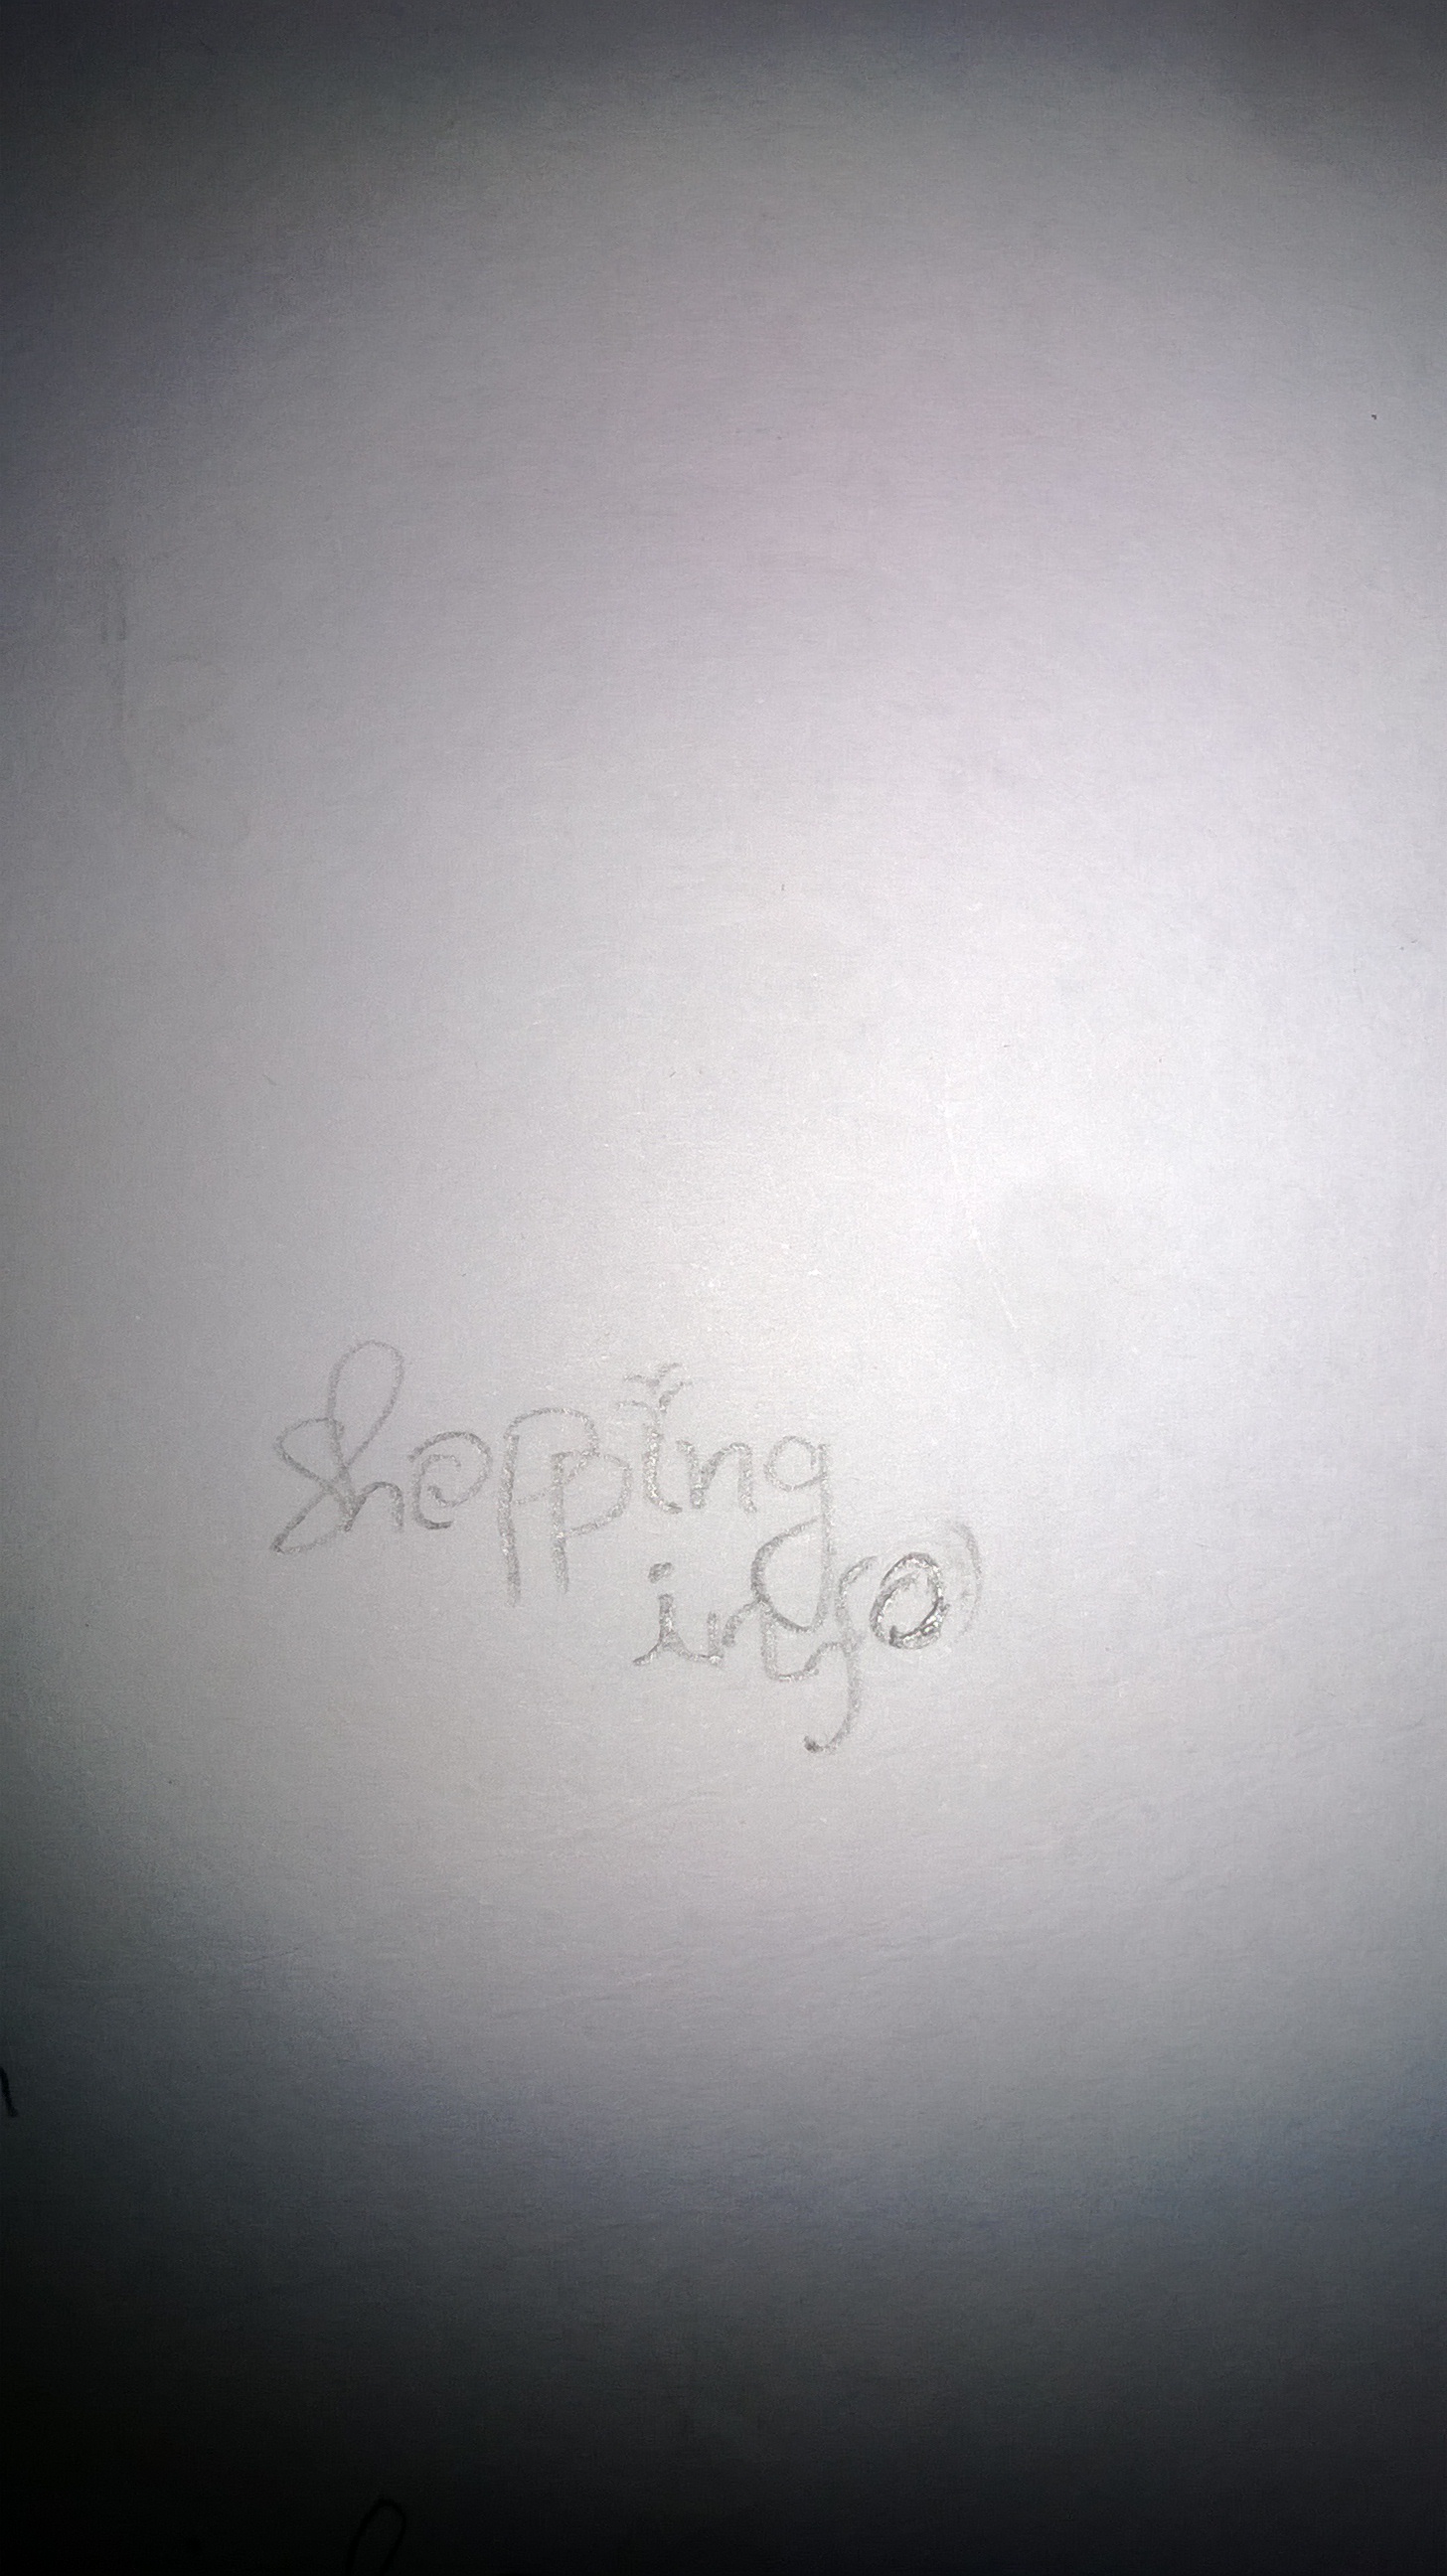 shopping
info